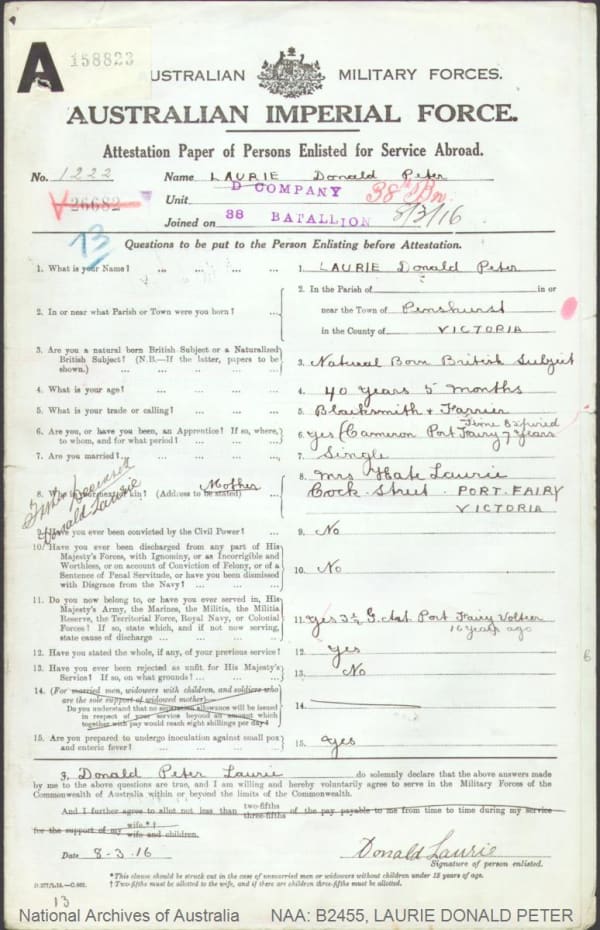 A 158823
AUSTRALIAN MILITARY FORCES.
AUSTRALIAN IMPERIAL FORCE.
Attestation Paper of Persons Enlisted for Service Abroad.
No. 1222 Name LAURIE Donald Peter
26682 Unit D COMPANY 38th Bn.
Joined on 38 BATALLION 8/3/16
73
Questions to be put to the Person Enlisting before Attestation.
1. What is your Name? ... ... ... ... 1. LAURIE Donald Peter
2. In or near what Parish or Town were you born? ... 2. In the Parish of in or
near the Town of Penshurst
in the County of VICTORIA
3. Are you a natural born British Subject or a Naturalized
British Subject? (N.B.—If the latter, papers to be
shown.) ... ... ... ... ... 3. Natural Born British Subject
4. What is your age? ... ... ... ... 4. 40 years 5 months
5. What is your trade or calling? ... ... ... 5. Blacksmith & Farrier
6. Are you, or have you been, an Apprentice? If so, where,
to whom, and for what period? ... ... ... 6. yes (Cameron Port Fairy 7 years Time Expired
7. Are you married? ... ... ... ... 7. Single
8. Who is your next of kin? (Address to be stated) Mother 8. Mrs Kate Laurie
Cock Street PORT FAIRY
VICTORIA
Father Deceased
Donald Laurie
9. Have you ever been convicted by the Civil Power? ... 9. No
10. Have you ever been discharged from any part of His
Majesty's Forces, with Ignominy, or as Incorrigible and
Worthless, or on account of Conviction of Felony, or of a
Sentence of Penal Servitude, or have you been dismissed
with Disgrace from the Navy? ... ... ... 10. No
11. Do you now belong to, or have you ever served in, His
Majesty's Army, the Marines, the Militia, the Militia
Reserve, the Territorial Force, Royal Navy, or Colonial
Forces? If so, state which, and if not now serving,
state cause of discharge ... ... ... 11. yes 3½ G. Art. Port Fairy Volteer
16 years ago
12. Have you stated the whole, if any, of your previous service? 12. yes
13. Have you ever been rejected as unfit for His Majesty's
Service? If so, on what grounds? ... ... ... 13. No
14. (For married men, widowers with children, and soldiers who
are the sole support of widowed mother)—
Do you understand that no separation allowance will be issued
in respect of your service beyond an amount which
together with pay would reach eight shillings per day? 14.
15. Are you prepared to undergo inoculation against small pox
and enteric fever? ... ... ... ... 15. yes
6
I, Donald Peter Laurie do solemnly declare that the above answers made
by me to the above questions are true, and I am willing and hereby voluntarily agree to serve in the Military Forces of the
Commonwealth of Australia within or beyond the limits of the Commonwealth.
And I further agree to allot not less than two-fifths three-fifths of the pay payable to me from time to time during my service
for the support of my wife.*† wife and children.
Date 8-3.16 Donald Laurie
Signature of person enlisted.
*This clause should be struck out in the case of unmarried men or widowers without children under 18 years of age.
† Two-fifths must be allotted to the wife, and if there are children three-fifths must be allotted.
13
National Archives of Australia NAA: B2455, LAURIE DONALD PETER